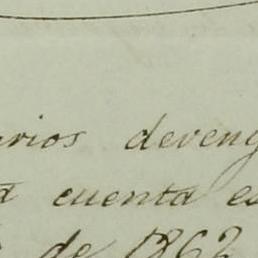 arios deveng
a cuenta es
de 1862